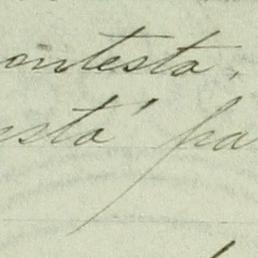 ontesta.
esta' pa